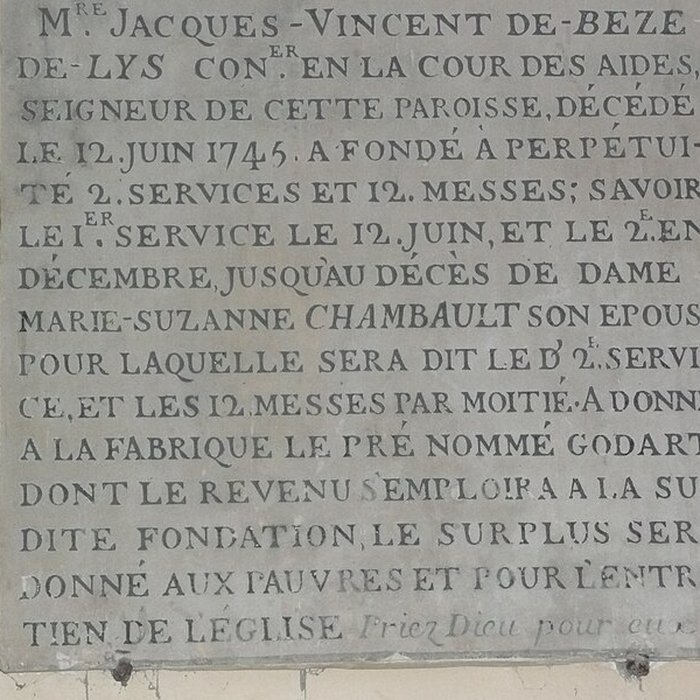 MRE. JACQUES-VINCENT DE-BEZE
DE-LYS CONER. EN LA COUR DES AIDES,
SEIGNEUR DE CETTE PAROISSE, DÉCÉDÉ
LE 12. JUIN 1745. A FONDÉ À PERPÉTUI-
TÉ 2. SERVICES ET 12. MESSES; SAVOIR
LE IER. SERVICE LE 12. JUIN, ET LE 2E. EN
DÉCEMBRE, JUSQU'AU DÉCÈS DE DAME
MARIE-SUZANNE CHAMBAULT SON EPOUS
POUR LAQUELLE SERA DIT LE D' 2E. SERVI
CE, ET LES 12. MESSES PAR MOITIÉ. A DONN
A LA FABRIQUE LE PRÉ NOMMÉ GODART
DONT LE REVENU S'EMPLOIRA A LA SU
DITE FONDATION, LE SURPLUS SER
DONNÉ AUX PAUVRES ET POUR L'ENTR
TIEN DE L'ÉGLISE Priez Dieu pour eux